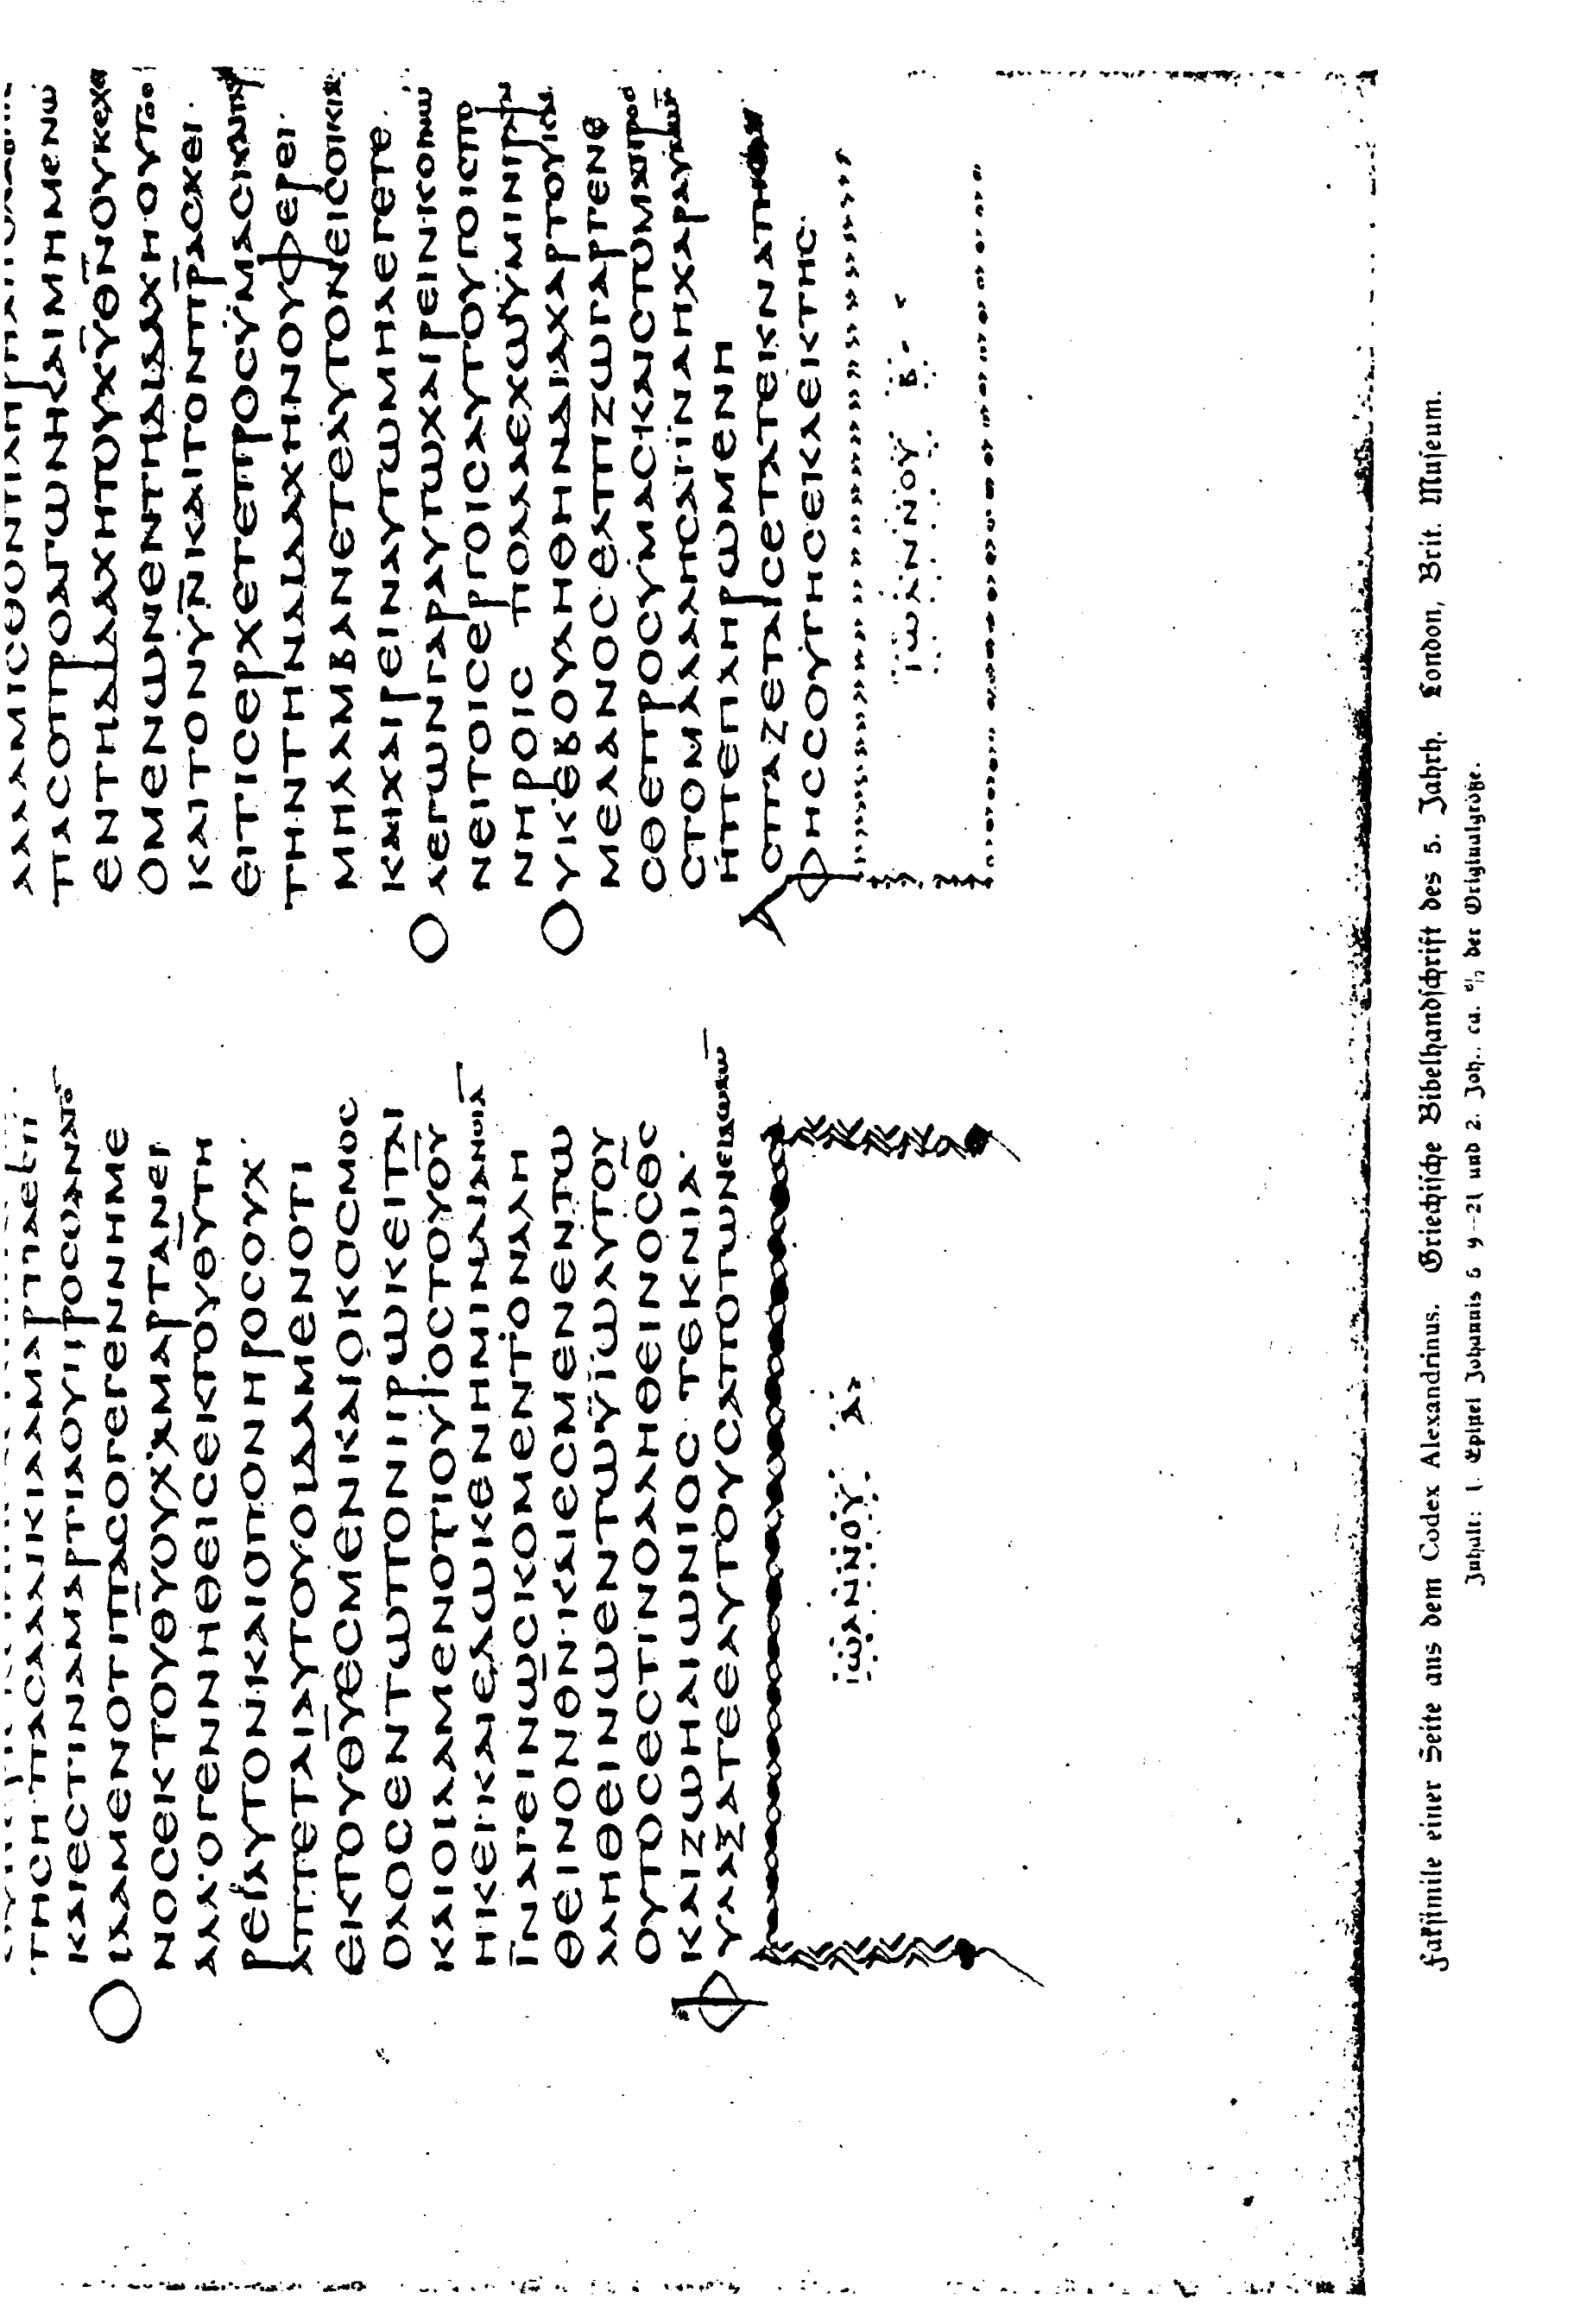 ΤΗϹΗ·ΠΑϹΑΑΔΙΚΙΑΑΜΑΡΤΙΑΕϹΤΙ
ΚΑΙΕϹΤΙΝΑΜΑΡΤΙΑΟΥΠΡΟϹΘΑΝΑΤΟ
ΟΙΔΑΜΕΝΟΤΙΠΑϹΟΓΕΓΕΝΝΗΜΕ
ΝΟϹΕΚΤΟΥΘΥΟΥΧΑΜΑΡΤΑΝΕΙ
ΑΛΛΟΓΕΝΝΗΘΕΙϹΕΚΤΟΥΘΥΤΗ
ΡΕΙΑΥΤΟΝ·ΚΑΙΟΠΟΝΗΡΟϹΟΥΧ
ΑΠΤΕΤΑΙΑΥΤΟΥΟΙΔΑΜΕΝΟΤΙ
ΕΚΤΟΥΘΥΕϹΜΕΝΚΑΙΟΚΟϹΜΟϹ
ΟΛΟϹΕΝΤΩΠΟΝΗΡΩΚΕΙΤΑΙ
ΚΑΙΟΙΔΑΜΕΝΟΤΙΟΥΙΟϹΤΟΥΘΥ
ΗΚΕΙ·ΚΑΙΕΔΩΚΕΝΗΜΙΝΔΙΑΝΟΙΑ
ΙΝΑΓΕΙΝΩϹΚΟΜΕΝΤΟΝΑΛΗ
ΘΕΙΝΟΝΘΝ·ΚΑΙΕϹΜΕΝΕΝΤΩ
ΑΛΗΘΕΙΝΩΕΝΤΩΥΙΩΑΥΤΟΥ
ΟΥΤΟϹΕϹΤΙΝΟΑΛΗΘΕΙΝΟϹΘϹ
ΚΑΙΖΩΗΑΙΩΝΙΟϹ ΤΕΚΝΙΑ·
ΦΥΛΑΞΑΤΕΕΑΥΤΟΥϹΑΠΟΤΩΝΕΙΔΩΛΩ
ΙΩΑΝΝΟΥ Α
ΠΑϹΟΠΡΟΑΓΩΝΚΑΙΜΗΜΕΝΩ
ΕΝΤΗΔΙΔΑΧΗΤΟΥΧΥΘΝΟΥΚΕΧΕΙ
ΟΜΕΝΩΝΕΝΤΗΔΙΔΑΧΗ·ΟΥΤΟϹ
ΚΑΙΤΟΝΥΝΚΑΙΤΟΝΠΡΑϹΧΕΙ·
ΕΙΤΙϹΕΡΧΕΤΕΠΡΟϹΥΜΑϹΚΑΙΤΑΥ
ΤΗΝΤΗΝΔΙΔΑΧΗΝΟΥΦΕΡΕΙ·
ΜΗΛΑΜΒΑΝΕΤΕΑΥΤΟΝΕΙϹΟΙΚΙΑ
ΚΑΙΧΑΙΡΕΙΝΑΥΤΩΜΗΛΕΓΕΤΕ
ΟΛΕΓΩΝΓΑΡΑΥΤΩΧΑΙΡΕΙΝ·ΚΟΙΝΩ
ΝΕΙΤΟΙϹΕΡΓΟΙϹΑΥΤΟΥΤΟΙϹΠΟ
ΝΗΡΟΙϹ ΠΟΛΛΑΕΧΩΥΜΙΝΓΡΑΨΑΙ
ΟΥΚΕΒΟΥΛΗΘΗΝΔΙΑΧΑΡΤΟΥΚΑΙ
ΜΕΛΑΝΟϹ·ΕΛΠΙΖΩΓΑΡΓΕΝΕ
ϹΘΕΠΡΟϹΥΜΑϹΚΑΙϹΤΟΜΑΠΡΟϹ
ϹΤΟΜΑΛΑΛΗϹΑΙΙΝΑΗΧΑΡΑΥΜΩΝ
ΗΠΕΠΛΗΡΩΜΕΝΗ
ΑϹΠΑΖΕΤΑΙϹΕΤΑΤΕΚΝΑΤΗϹ
ΑΔΕΛΦΗϹϹΟΥΤΗϹΕΚΛΕΚΤΗϹ·
ΙΩΑΝΝΟΥ Β
Faksimile einer Seite aus dem Codex Alexandrinus. Griechische Bibelhandschrift des 5. Jahrh. London, Brit. Museum.
Inhalt: 1. Epistel Johannis 5 9–21 und 2. Joh., ca. der Originalgröße.